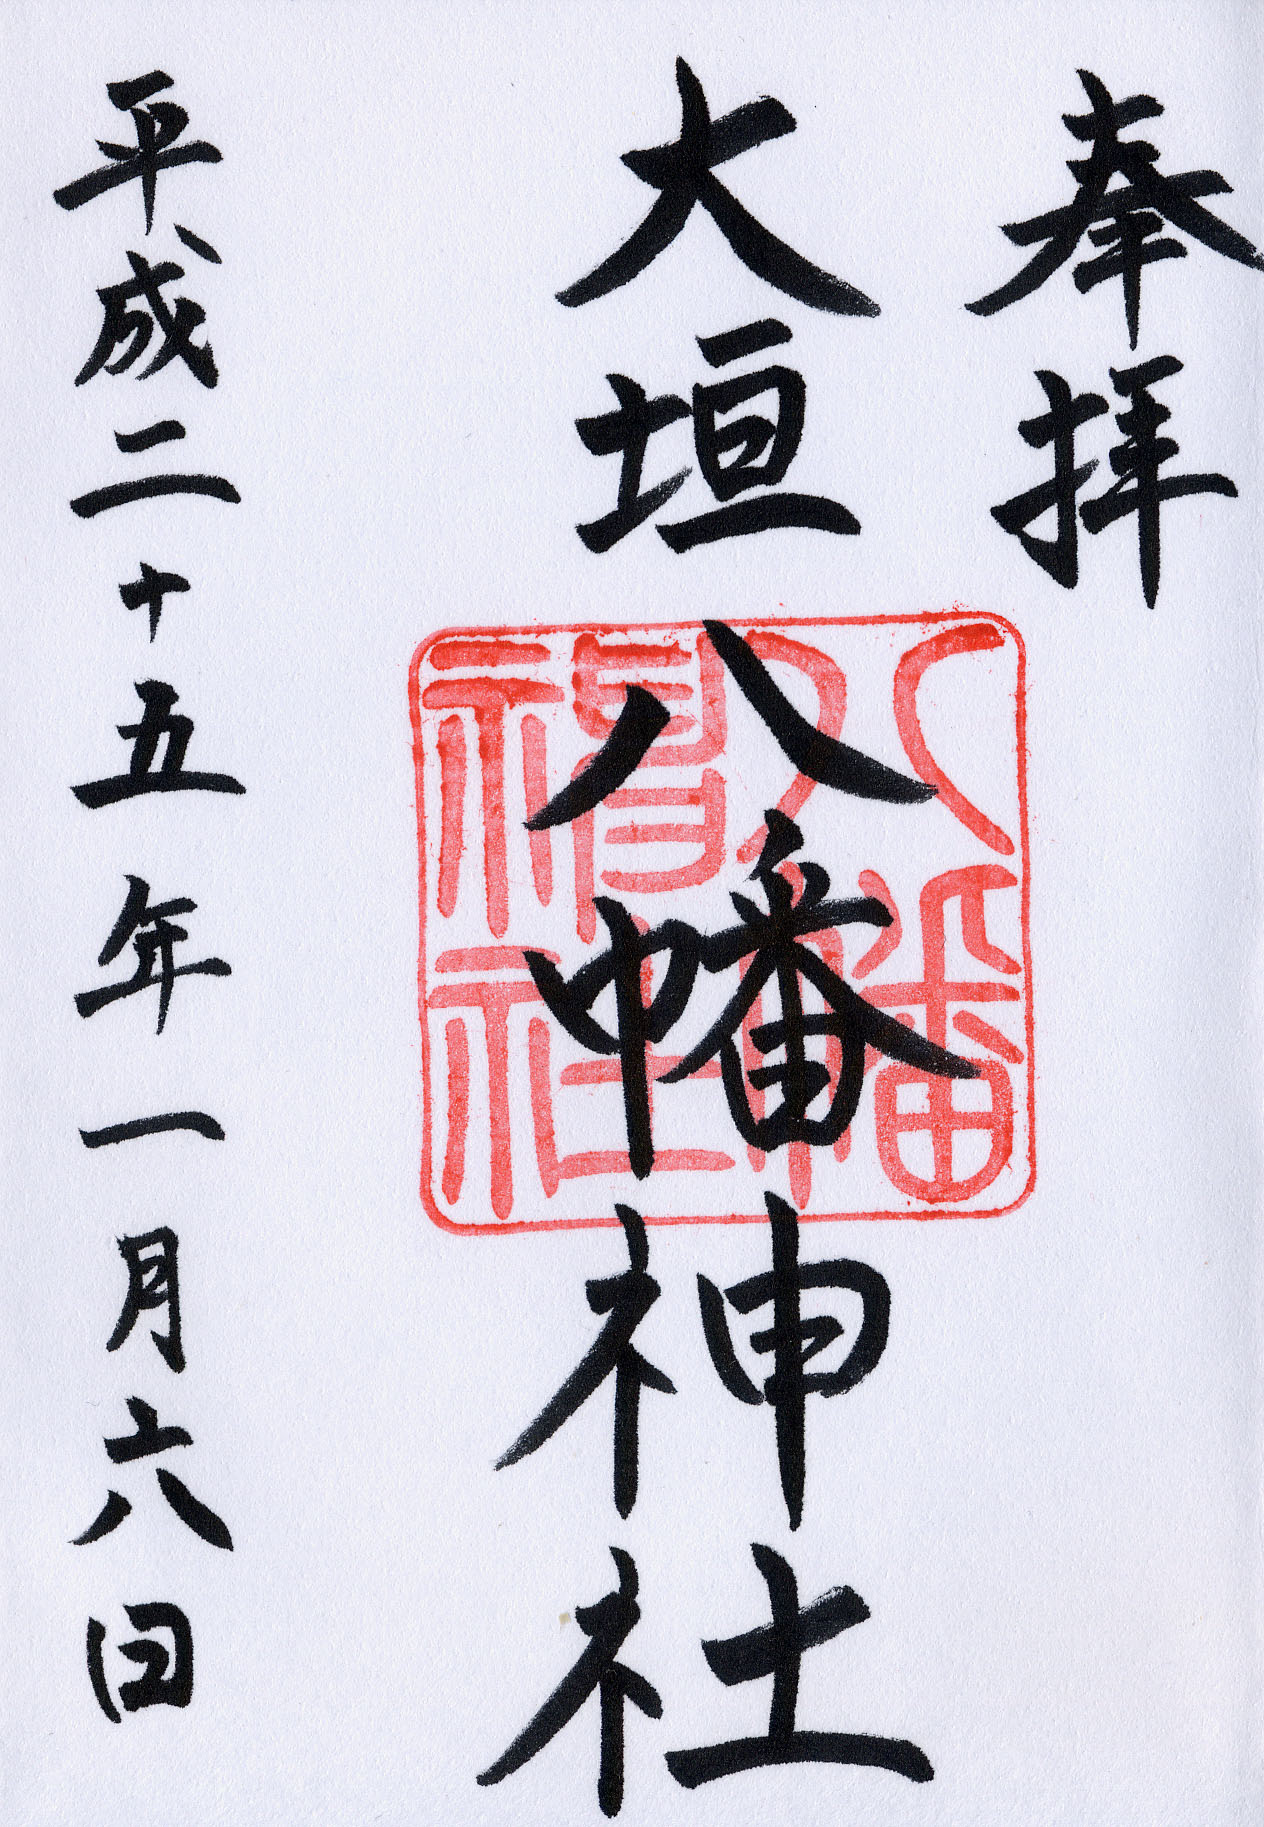 奉拝
大垣八幡神社
八幡神社
平成二十五年一月六日